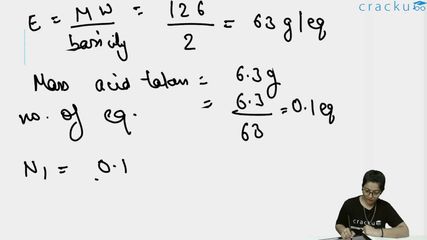 cracku
E = MW/basicity = 126/2 = 63 g/eq
Mass acid taken = 6.3g
no. of eq. = 6.3/63 = 0.1eq
N1 = 0.1
cracku